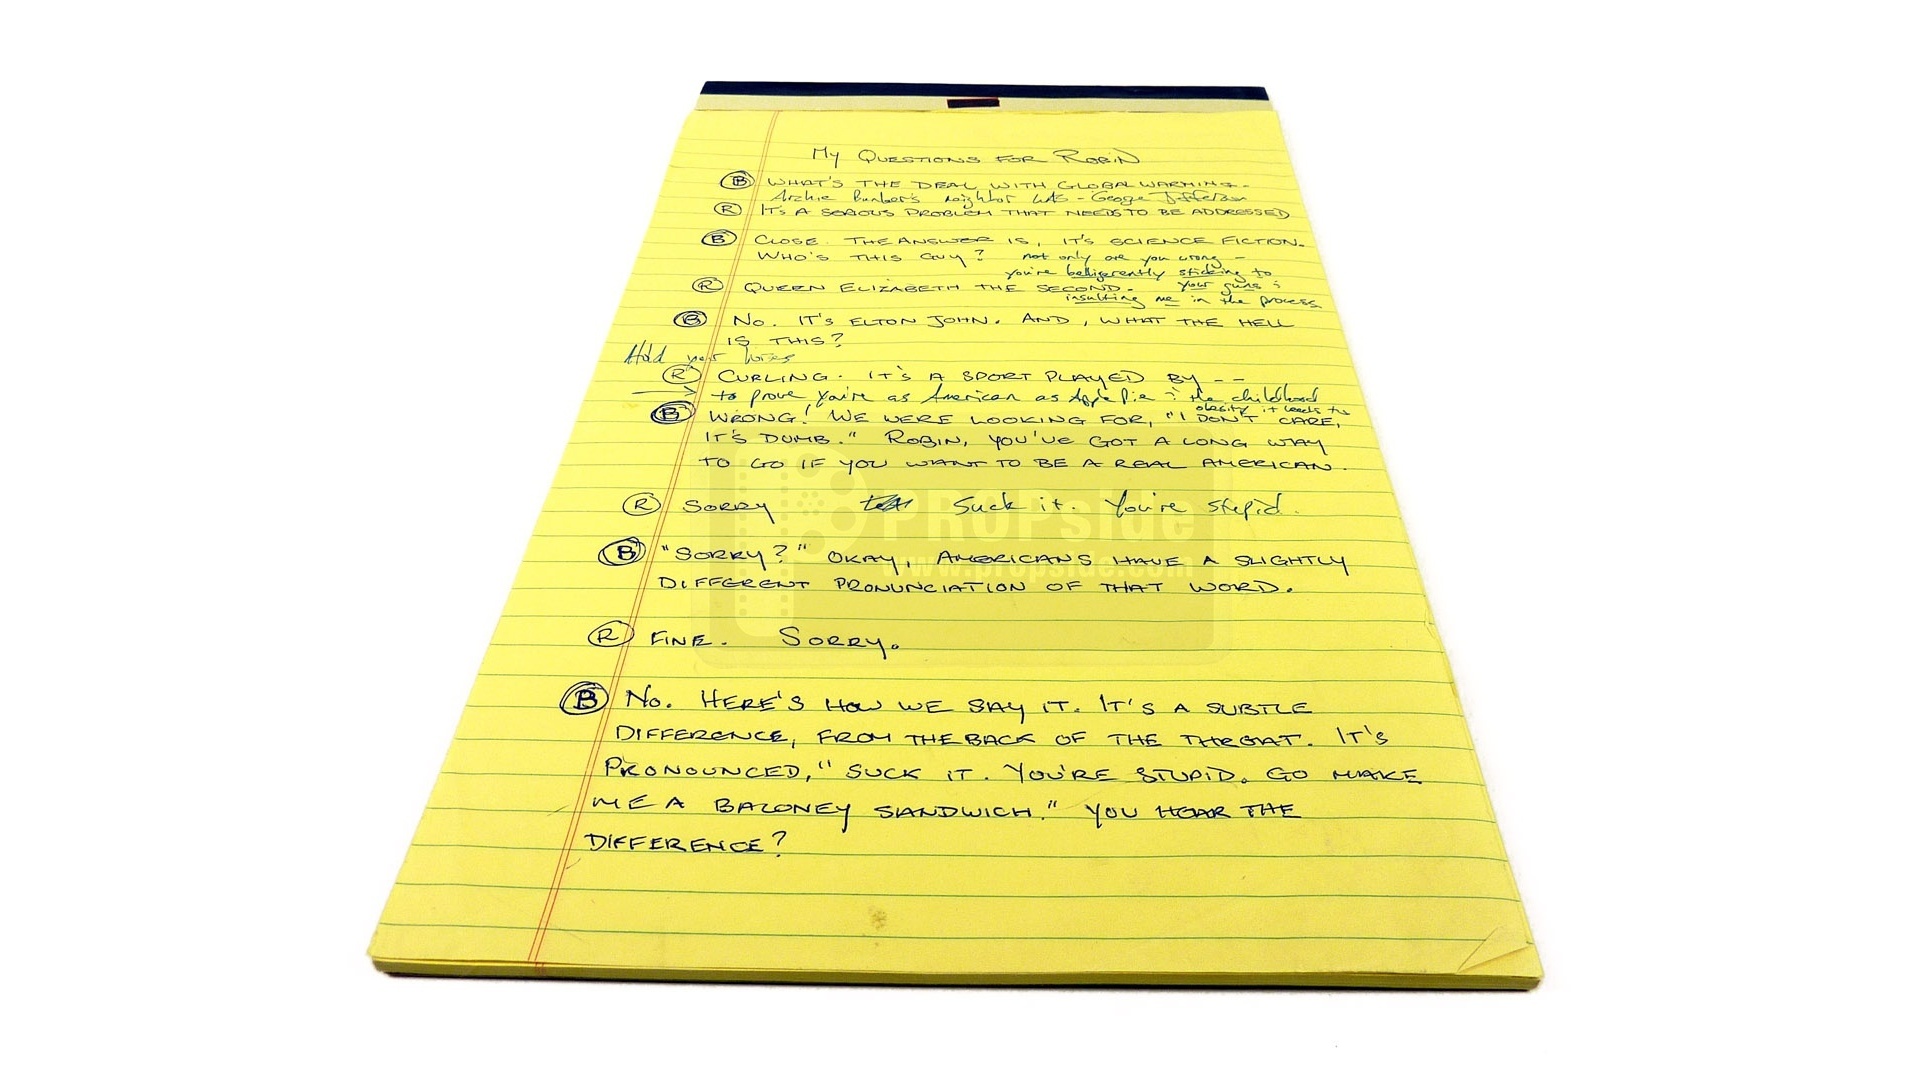 My Questions for Robin
B WHAT'S THE DEAL WITH GLOBAL WARMING.
Archie Bunker's neighbor was - George Jefferson
R IT'S A SERIOUS PROBLEM THAT NEEDS TO BE ADDRESSED
B CLOSE. THE ANSWER IS, IT'S SCIENCE FICTION.
WHO'S THIS GUY? not only are you wrong -
you're belligerently sticking to
R QUEEN ELIZABETH THE SECOND. your guns &
insulting me in the process
B NO. IT'S ELTON JOHN. AND, WHAT THE HELL
IS THIS?
Hold your
R CURLING. IT'S A SPORT PLAYED BY --
to prove you're as American as Apple Pie & the childhood
obesity it leads to
B WRONG! WE WERE LOOKING FOR, "I DON'T CARE,
IT'S DUMB." ROBIN, YOU'VE GOT A LONG WAY
TO GO IF YOU WANT TO BE A REAL AMERICAN.
R SORRY Suck it. You're stupid.
B "SORRY?" OKAY, AMERICANS HAVE A SLIGHTLY
DIFFERENT PRONUNCIATION OF THAT WORD.
R FINE. SORRY.
B NO. HERE'S HOW WE SAY IT. IT'S A SUBTLE
DIFFERENCE, FROM THE BACK OF THE THROAT. IT'S
PRONOUNCED, "SUCK IT. YOU'RE STUPID. GO MAKE
ME A BALONEY SANDWICH." YOU HEAR THE
DIFFERENCE?
PROPside
www.propside.com